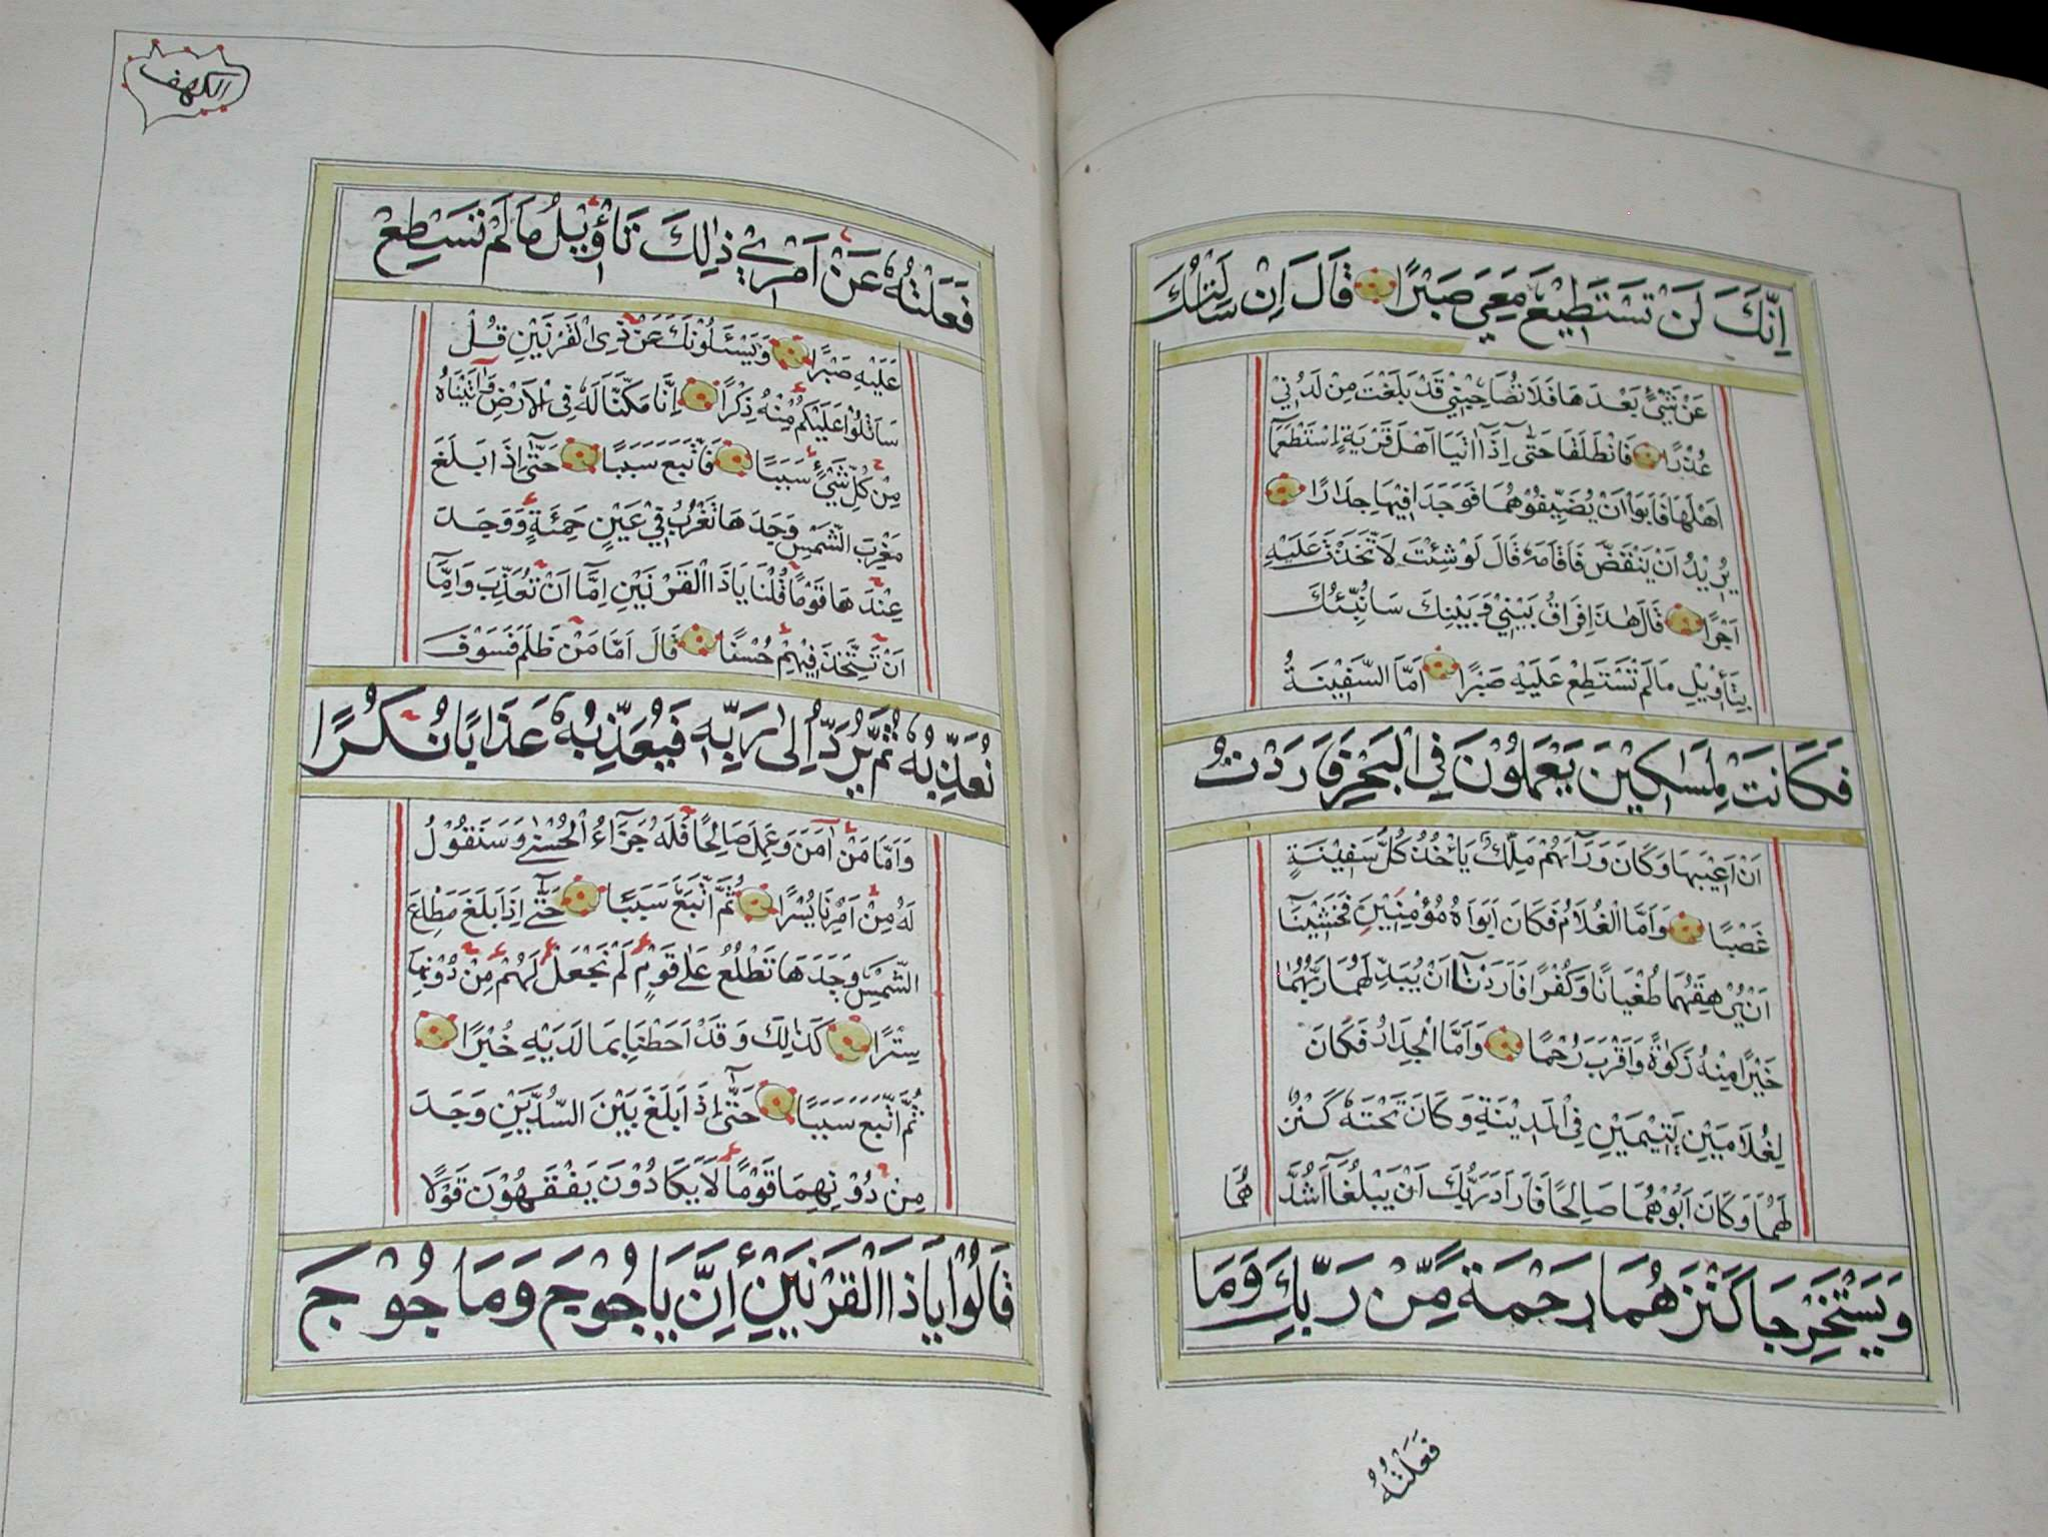 اِنَّكَ لَنْ تَسْتَطِيْعَ مَعِيَ صَبْرًا قَالَ اِنْ سَاَلْتُكَ
عَنْ شَيْءٍ بَعْدَهَا فَلَا تُصَاحِبْنِيْ قَدْ بَلَغْتَ مِنْ لَدُنِّيْ
عُذْرًا فَانْطَلَقَا حَتّٰى اِذَا اَتَيَا اَهْلَ قَرْيَةِ اِسْتَطْعَمَا
اَهْلَهَا فَاَبَوْا اَنْ يُضَيِّفُوْهُمَا فَوَجَدَا فِيْهَا جِدَارًا
يُرِيْدُ اَنْ يَنْقَضَّ فَاَقَامَهٗ قَالَ لَوْ شِئْتَ لَتَّخَذْتَ عَلَيْهِ
اَجْرًا قَالَ هٰذَا فِرَاقُ بَيْنِيْ وَبَيْنِكَ سَاُنَبِّئُكَ
بِتَأْوِيْلِ مَا لَمْ تَسْتَطِعْ عَلَيْهِ صَبْرًا اَمَّا السَّفِيْنَةُ
فَكَانَتْ لِمَسٰكِيْنَ يَعْمَلُوْنَ فِى الْبَحْرِ فَاَرَدْتُ
اَنْ اَعِيْبَهَا وَكَانَ وَرَآءَهُمْ مَلِكٌ يَأْخُذُ كُلَّ سَفِيْنَةٍ
غَصْبًا وَاَمَّا الْغُلَامُ فَكَانَ اَبَوَاهُ مُؤْمِنَيْنِ فَخَشِيْنَآ
اَنْ يُرْهِقَهُمَا طُغْيَانًا وَكُفْرًا فَاَرَدْنَآ اَنْ يُبَدِّلَهُمَا رَبُّهُمَا
خَيْرًا مِنْهُ زَكٰوةً وَاَقْرَبَ رُحْمًا وَاَمَّا الْجِدَارُ فَكَانَ
لِغُلَامَيْنِ يَتِيْمَيْنِ فِى الْمَدِيْنَةِ وَكَانَ تَحْتَهٗ كَنْزٌ
لَهُمَا وَكَانَ اَبُوْهُمَا صَالِحًا فَاَرَادَ رَبُّكَ اَنْ يَبْلُغَآ اَشُدَّ هُمَا
وَيَسْتَخْرِجَا كَنْزَهُمَا رَحْمَةً مِّنْ رَبِّكَ وَمَا
فَعَلْتُهُ
الكهف
فَعَلْتُهٗ عَنْ اَمْرِيْ ذٰلِكَ تَأْوِيْلُ مَا لَمْ تَسْطِعْ
عَلَيْهِ صَبْرًا وَيَسْئَلُوْنَكَ عَنْ ذِى الْقَرْنَيْنِ قُلْ
سَاَتْلُوْا عَلَيْكُمْ مِنْهُ ذِكْرًا اِنَّا مَكَّنَّا لَهٗ فِى الْاَرْضِ وَاٰتَيْنَاهُ
مِنْ كُلِّ شَيْءٍ سَبَبًا فَاَتْبَعَ سَبَبًا حَتّٰٓى اِذَا بَلَغَ
مَغْرِبَ الشَّمْسِ وَجَدَهَا تَغْرُبُ فِيْ عَيْنٍ حَمِئَةٍ وَوَجَدَ
عِنْدَهَا قَوْمًا قُلْنَا يَاذَا الْقَرْنَيْنِ اِمَّآ اَنْ تُعَذِّبَ وَاِمَّآ
اَنْ تَتَّخِذَ فِيْهِمْ حُسْنًا قَالَ اَمَّا مَنْ ظَلَمَ فَسَوْفَ
نُعَذِّبُهٗ ثُمَّ يُرَدُّ اِلٰى رَبِّهٖ فَيُعَذِّبُهٗ عَذَابًا نُكْرًا
وَاَمَّا مَنْ اٰمَنَ وَعَمِلَ صَالِحًا فَلَهٗ جَزَآءُ الْحُسْنٰى وَسَنَقُوْلُ
لَهٗ مِنْ اَمْرِنَا يُسْرًا ثُمَّ اَتْبَعَ سَبَبًا حَتّٰٓى اِذَا بَلَغَ مَطْلِعَ
الشَّمْسِ وَجَدَهَا تَطْلُعُ عَلٰى قَوْمٍ لَمْ نَجْعَلْ لَهُمْ مِنْ دُوْنِهَا
سِتْرًا كَذٰلِكَ وَقَدْ اَحَطْنَا بِمَا لَدَيْهِ خُبْرًا
ثُمَّ اَتْبَعَ سَبَبًا حَتّٰٓى اِذَا بَلَغَ بَيْنَ السَّدَّيْنِ وَجَدَ
مِنْ دُوْنِهِمَا قَوْمًا لَا يَكَادُوْنَ يَفْقَهُوْنَ قَوْلًا
قَالُوْا يَاذَا الْقَرْنَيْنِ اِنَّ يَاجُوْجَ وَمَاجُوْجَ